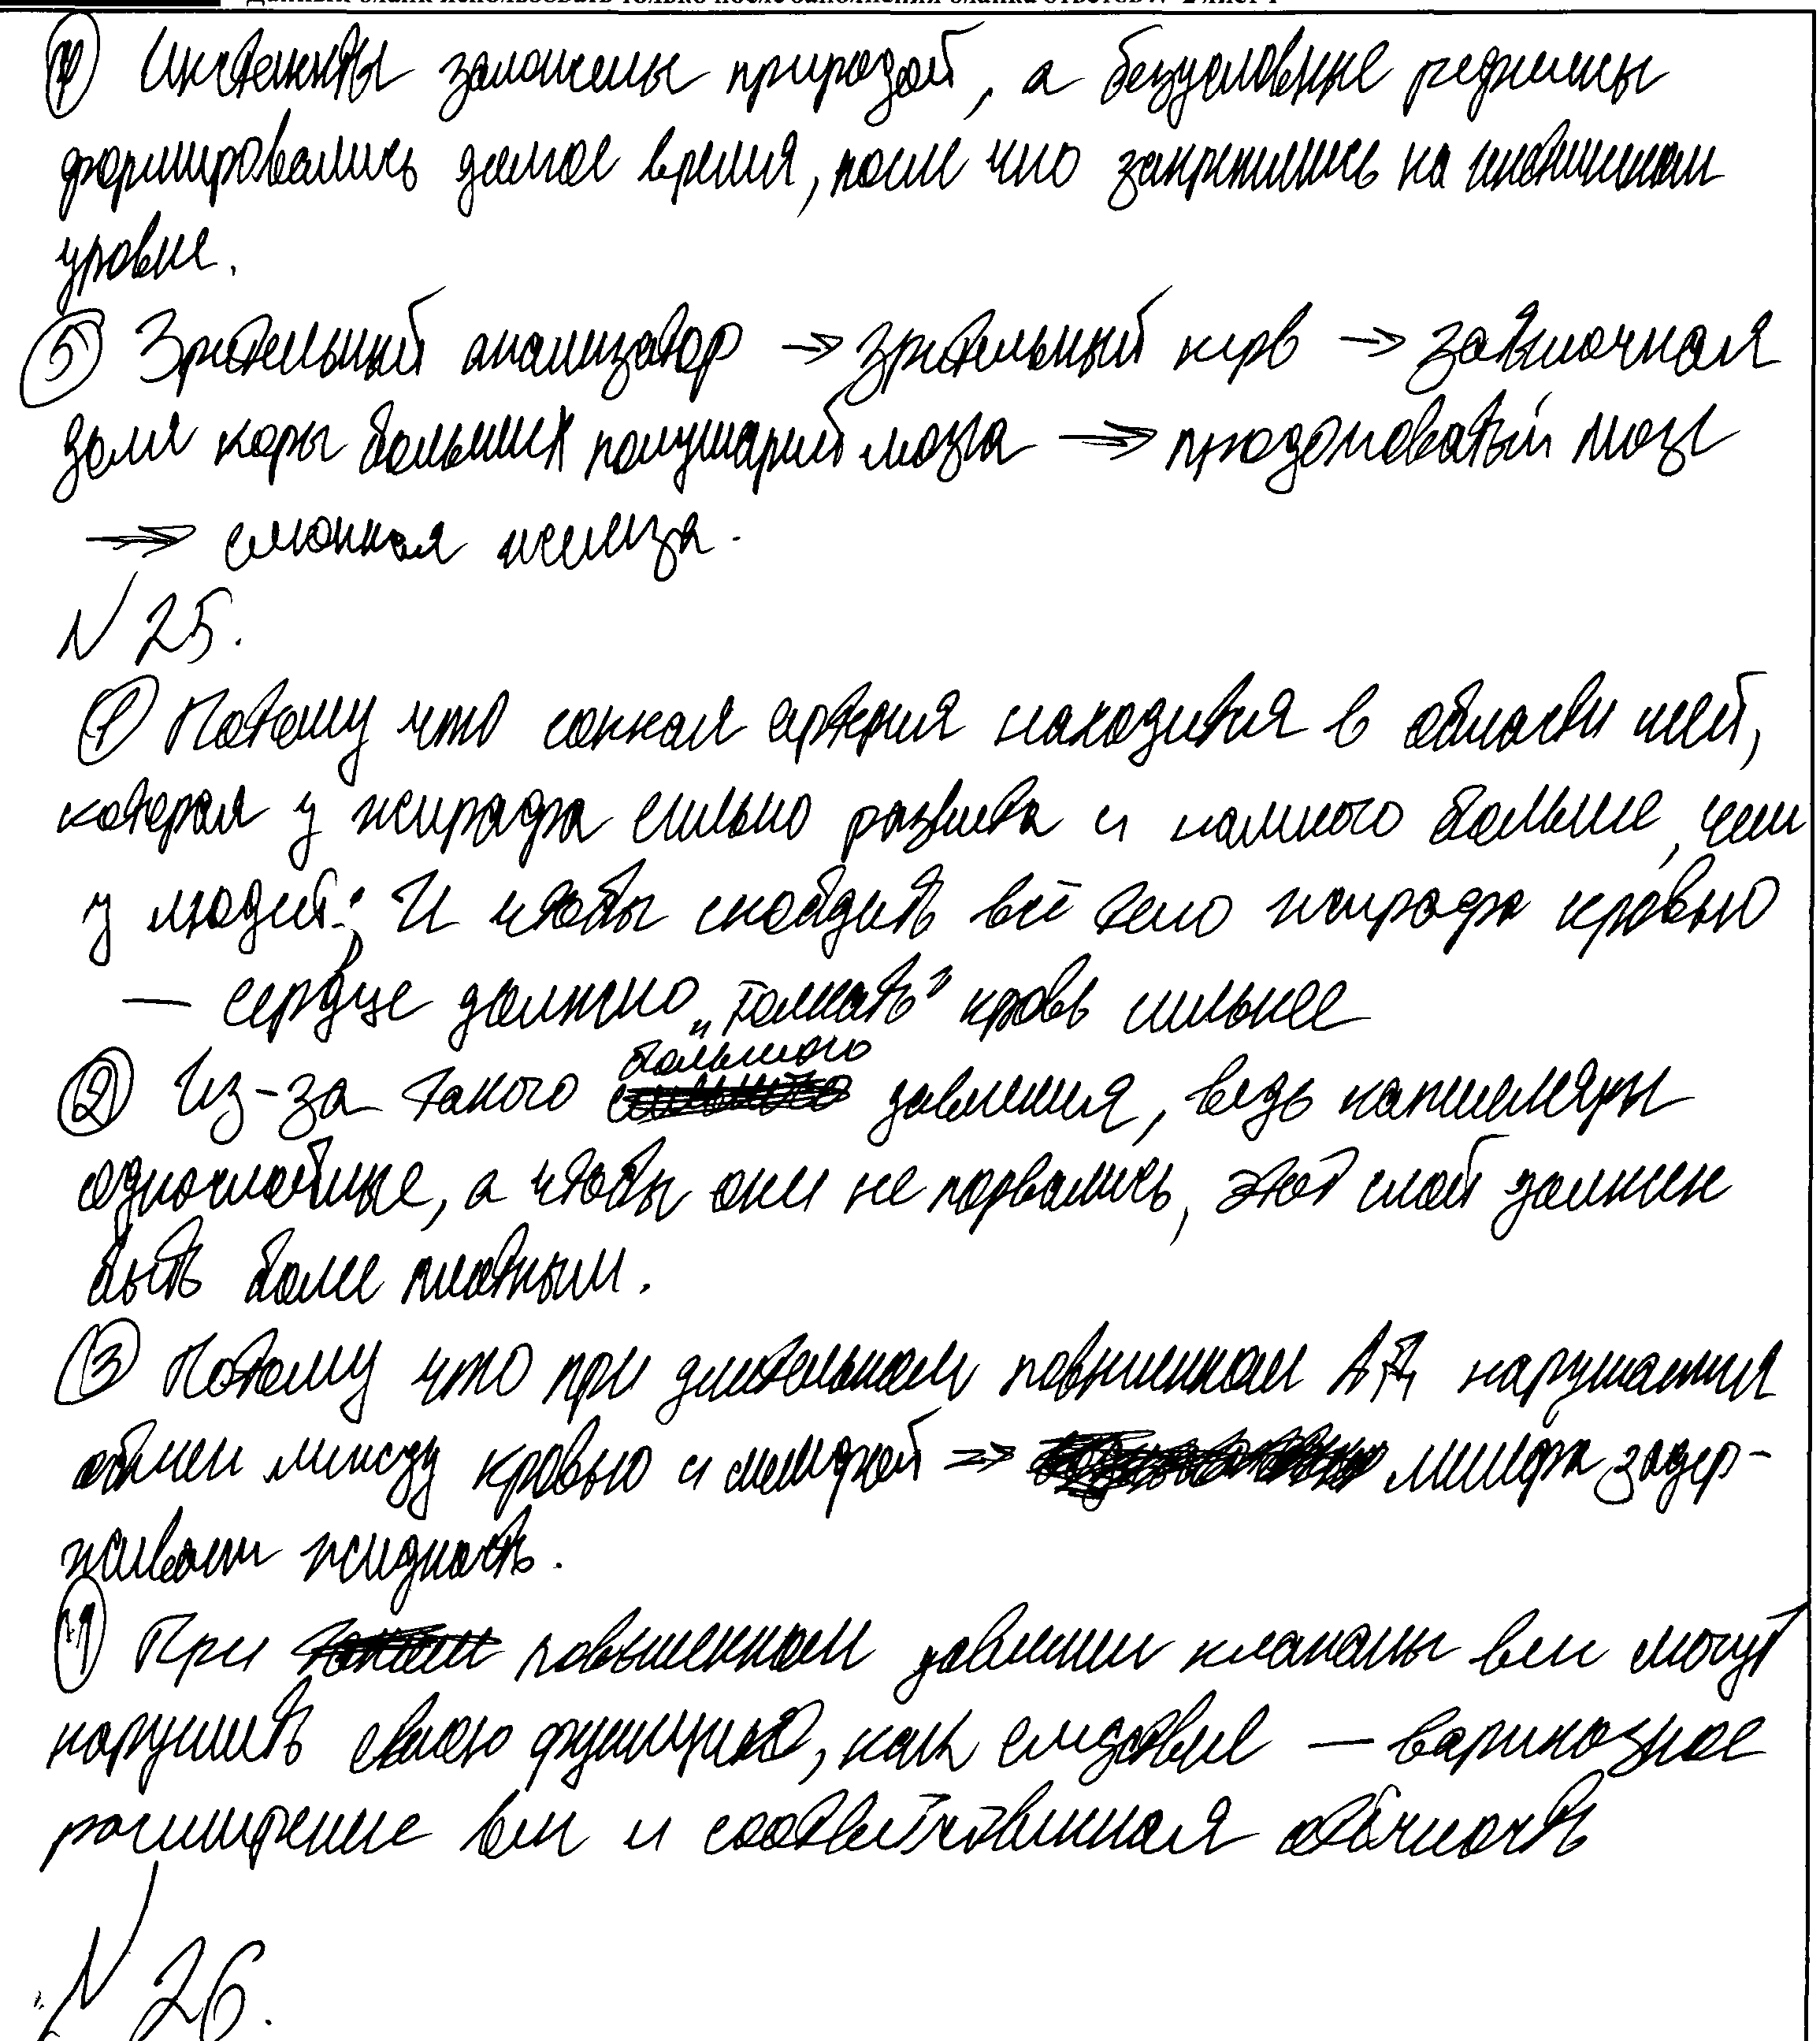 Данный бланк использовать только после заполнения бланка ответов № 2 лист 1
④ Инстинкты заложены природой, а безусловные рефлексы
формировались долгое время, после что закрепились на инстинктном
уровне.
⑤ Зрительный анализатор → зрительный нерв → затылочная
доля коры больших полушарий мозга → продолговатый мозг
→ слюнная железа.
№ 25.
① Потому что сонная артерия находится в области шеи,
которая у жирафа сильно развита и намного больше, чем
у людей; И чтобы снабдить всё тело жирафа кровью
— сердце должно „толкать" кровь сильнее
② Из-за такого большого давления, ведь капилляры
однослойные, а чтобы они не порвались, этот слой должен
быть более плотным.
③ Потому что при длительном повышенном АД, нарушается
обмен между кровью и лимфой => лимфа задер-
живает жидкость.
④ При повышенном давлении клапаны вен могут
нарушить свою функцию, как следствие — варикозное
расширение вен и соответственная отёчность
№ 26.